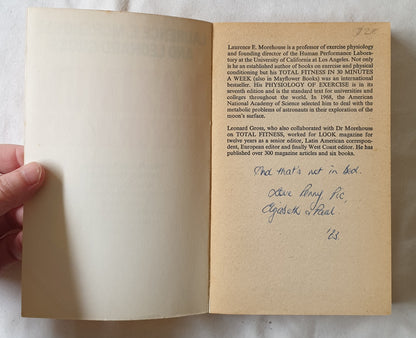 Laurence E. Morehouse is a professor of exercise physiology
and founding director of the Human Performance Labora-
tory at the University of California at Los Angeles. Not only
is he an established author of books on exercise and physical
conditioning but his TOTAL FITNESS IN 30 MINUTES
A WEEK (also in Mayflower Books) was an international
bestseller. His PHYSIOLOGY OF EXERCISE is in its
seventh edition and is the standard text for universities and
colleges throughout the world. In 1968, the American
National Academy of Science selected him to deal with the
metabolic problems of astronauts in their exploration of the
moon's surface.
Leonard Gross, who also collaborated with Dr Morehouse
on TOTAL FITNESS, worked for LOOK magazine for
twelve years as a senior editor, Latin American correspon-
dent, European editor and finally West Coast editor. He has
published over 300 magazine articles and six books.
And that's not in bed.
Love Penny
Elizabeth & Paul.
'83